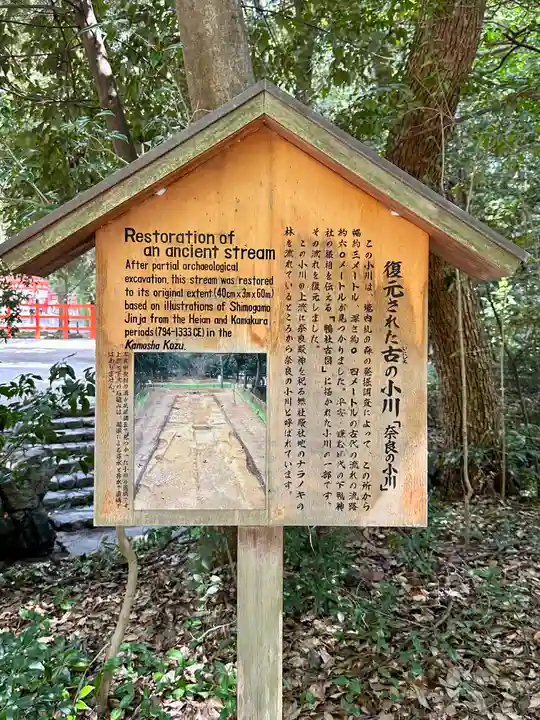 Restoration of
an ancient stream
After partial archaeological
excavation, this stream was restored
to its original extent (40cm×3m×60m)
based on illustrations of Shimogamo
Jinja from the Heian and Kamakura
periods (794-1333CE) in the
Kamosha Kozu.
復元された古の小川「奈良の小川」
この小川は、境内糺の森の発掘調査によって、この所から
幅約三メートル 深さ約〇・四メートルの古代の流れの流路
約六〇メートルが見つかりました。平安、鎌倉時代の下鴨神
社の様相を伝える「鴨社古図」に描かれた小川の一部です。
その流れを復元しました。
この小川の上流に奈良殿神を祀る無社殿社地のナラノキの
林を流れているところから奈良の小川と呼ばれています。